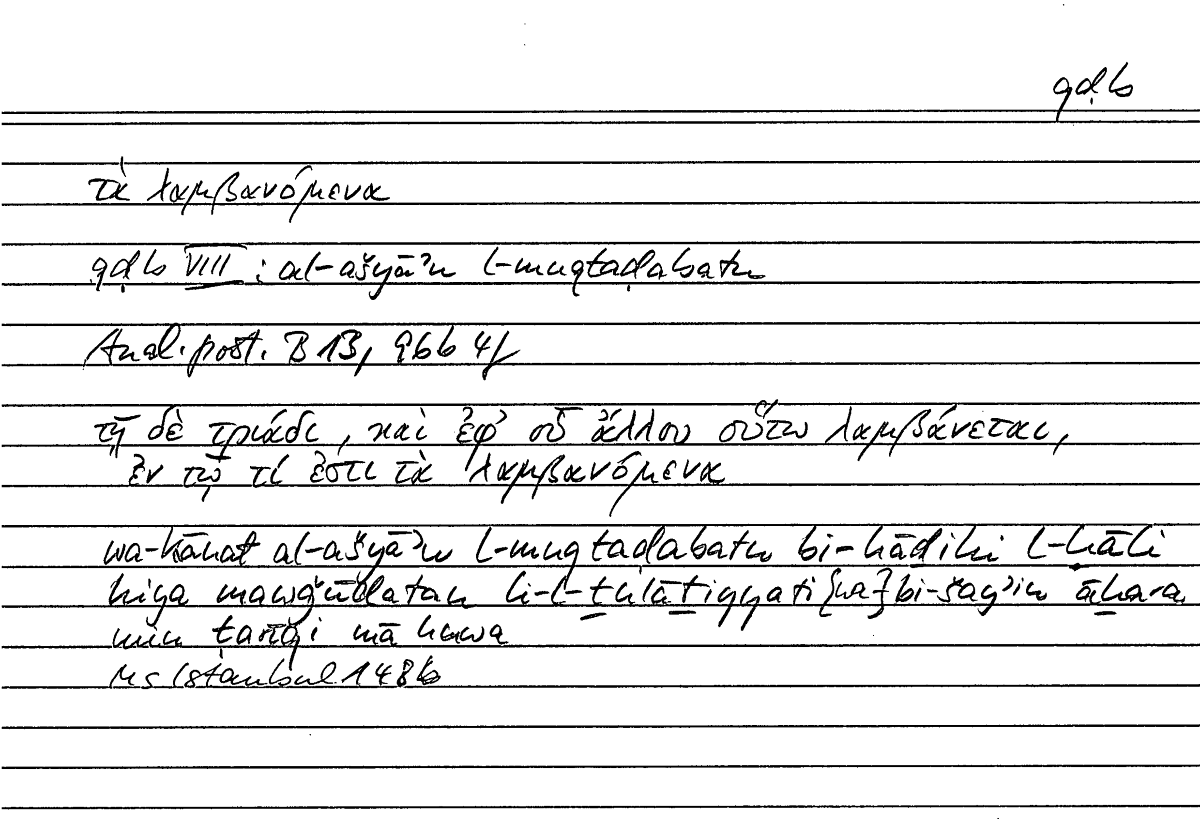 qḍb
τὰ λαμβανόμενα
qḍb VIII : al-ašyāʾu l-muqtaḍabatu
Anal. post. B 13, 96b 4f
τῇ δὲ τριάδι, καὶ ἐφ' οὗ ἄλλου οὕτω λαμβάνεται,
ἐν τῷ τί ἐστι τὰ λαμβανόμενα
wa-kānat al-ašyāʾu l-muqtaḍabatu bi-hāḏihi l-ḥāli
hiya mawǧūdatan li-l-ṯulāṯiyyati {wa-} bi-šayʾin āḫara
min ṭarīqi mā huwa
Ms Istanbul 148b